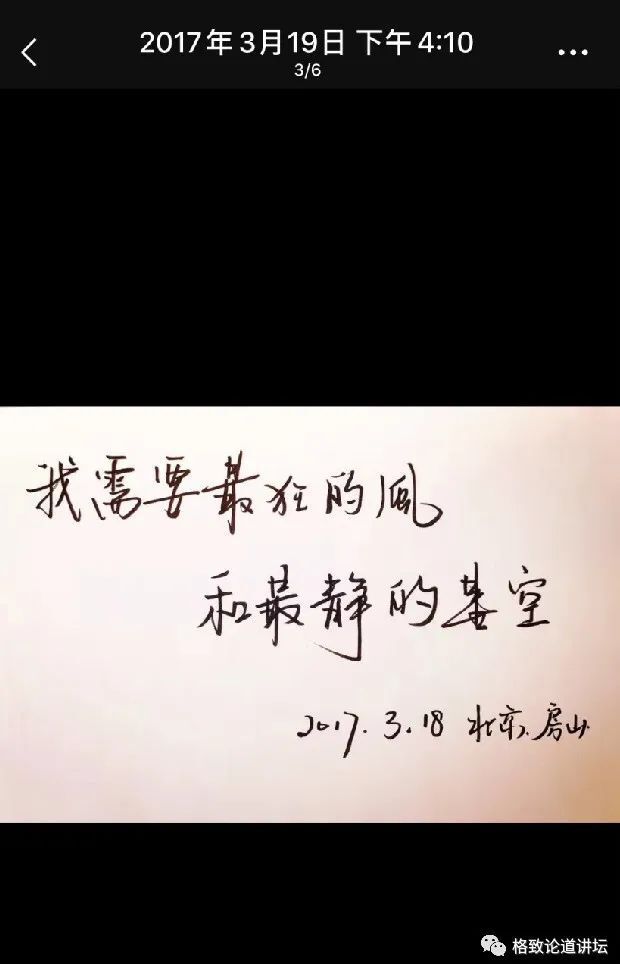 2017年3月19日 下午4:10
3/6
我需要最狂的风
和最静的空
2017.3.18 北京.房山
格致论道讲坛